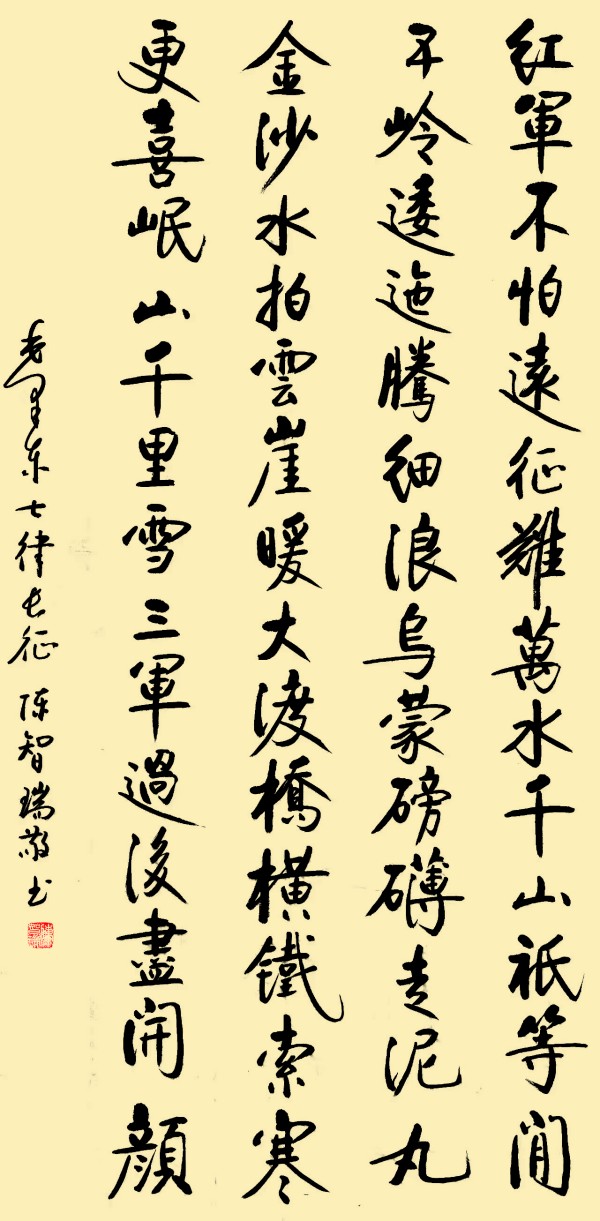 紅軍不怕遠征難萬水千山祇等閒
五岭逶迤騰細浪烏蒙磅礴走泥丸
金沙水拍雲崖暖大渡橋横鐵索寒
更喜岷山千里雪三軍過後盡開顔
毛泽东七律长征 陈智瑞敬书